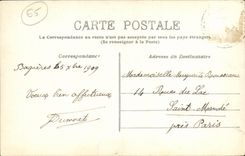 E5
CARTE POSTALE
La Correspondance au recto n'est pas acceptée par tous les pays étrangers
(Se renseigner à la Poste)
Correspondance
Adresse du Destinataire
Bagnères le 6 Xbre 1909
Mademoiselle Marguerite
14 Rue du Lac
Voeux bien affectueux
Saint-Mandé
près Paris